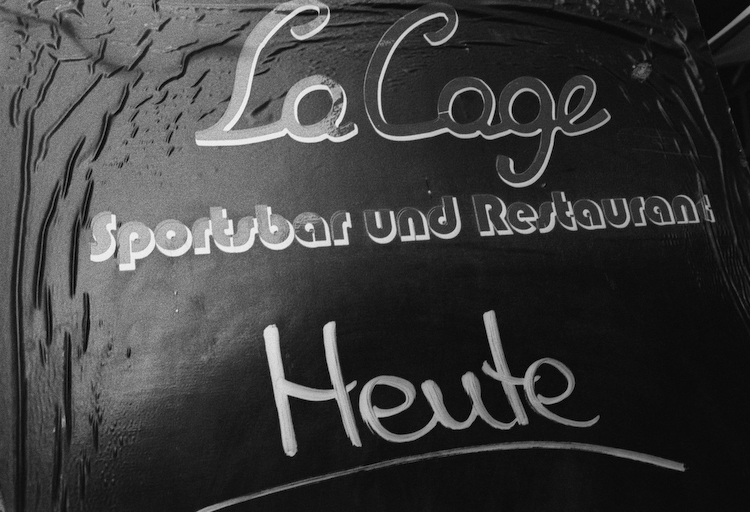 La Cage
Sportsbar und Restaurant
Heute